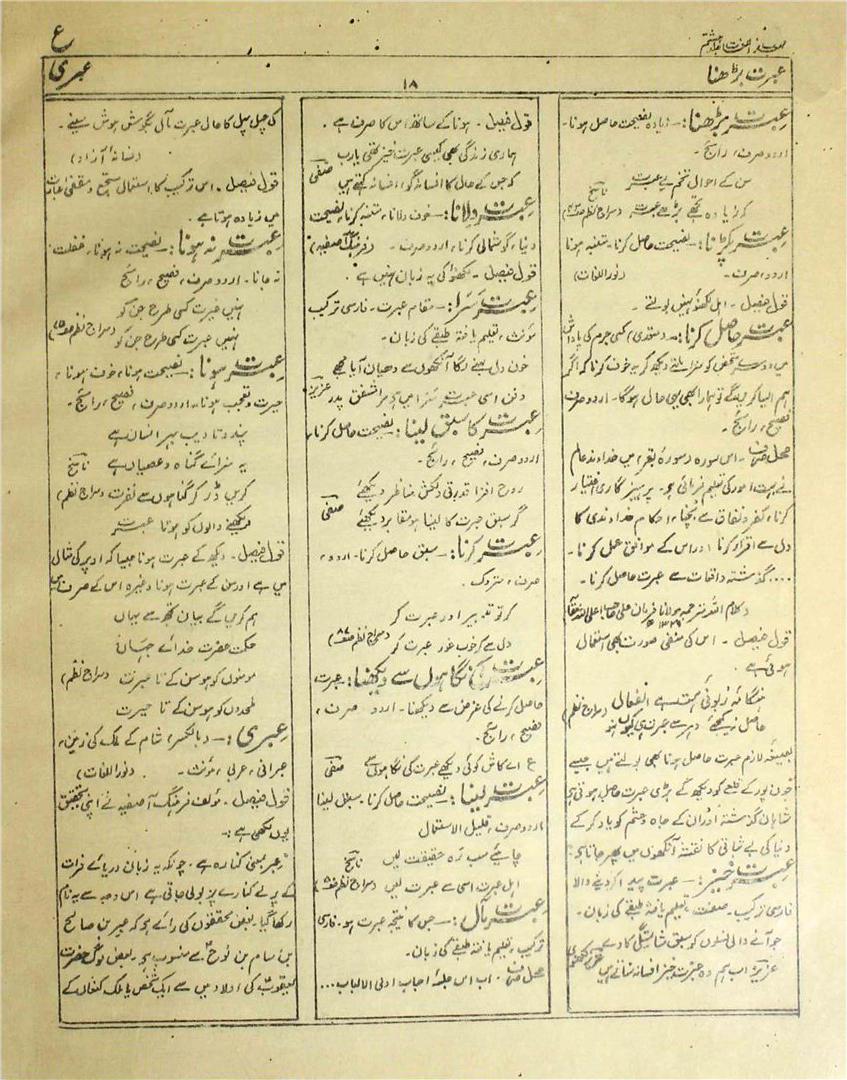 مہذب اللغات جلد ہشتم
ع
عبرت بڑھنا
۱۸
عبری
عبرت بڑھنا :۔ زیادہ نصیحت حاصل ہونا۔
اردو صرف، رائج۔
سن کے احوال تخم بے عبرت
کہ زیادہ تجھے بڑھے عبرت
عبرت پکڑنا :۔ نصیحت حاصل کرنا۔ متنبہ ہونا
اردو، صرف۔ (نور اللغات)
قول فیصل۔ اہل لکھنؤ نہیں بولتے۔
عبرت حاصل کرنا :۔ (دستوری) کسی جرم کی پاداش
میں دوسرے شخص کو سزا ملتے دیکھ کر یہ خوف کرنا کہ اگر
ہم ایسا کریں گے تو ہمارا بھی یہی حال ہوگا۔ اردو صرف
فصیح، رائج۔
محل صرف۔ اس سورہ (سورۂ بقر) میں خداوند عالم
نے بہت امور کی تعلیم فرمائی ہے۔ پرہیزگاری اختیار
کرنا، کفر و نفاق سے بچنا، احکام خداوندی کا
دل سے اقرار کرنا اور اس کے موافق عمل کرنا۔
.... گذشتہ واقعات سے عبرت حاصل کرنا۔
(کلام اللہ مترجمہ مولانا فرمان علی صاحب اعلی اللہ مقامہ
قول فیصل۔ اس کی منفی صورت بھی استعمال
ہوتی ہے۔
حاصل نہ کیجئے دہر سے عبرت ہی کیوں نہ ہو
بصیغہ لازم عبرت حاصل ہونا بھی بولتے ہیں جیسے
پور کے قلعے کو دیکھ کے بڑی عبرت حاصل ہوتی ہے
شاہان گذشتہ اور ان کے جاہ و حشم کو یاد کر کے
دنیا کی بے ثباتی کا نقشہ آنکھوں میں پھر جاتا ہے۔
عبرت خیز :۔ عبرت پیدا کر دینے والا
فارسی ترکیب۔ صفت، تعلیم یافتہ طبقے کی زبان۔
جو آنے والی نسلوں کو سبق شائستگی کا دے
عزیزؔ اب ہم وہ عبرت خیز افسانہ سناتے ہیں عزیز لکھنوی
قول فیصل۔ ہونا کے ساتھ اس کا صرف ہے۔
ہماری زندگی بھی کیسی عبرت خیز تھی یارب
کہ جس کے حال کا افسانہ گو افسانہ کہتے ہیں صفی
عبرت دلانا :۔ خوف دلانا، متنبہ کرنا، نصیحت
دینا، گوشمالی کرنا، اردو صرف۔ (فرہنگ آصفیہ)
قول فیصل۔ لکھنؤ کی یہ زبان نہیں ہے۔
عبرت سرا :۔ مقام عبرت۔ فارسی ترکیب
مؤنث، تعلیم یافتہ طبقے کی زبان۔
خون دل بہنے لگا آنکھوں سے دھیان آیا مجھے
دفن اسی عبرت سرا میں ہے مرا مشفق پدر عزیز
عبرت کا سبق لینا :۔ نصیحت حاصل کرنا۔
اردو صرف، فصیح، رائج۔
روح افزا قدرتی دلکش مناظر دیکھئے
گر سبق عبرت کا لینا ہو مقابر دیکھئے صفی
عبرت کرنا :۔ سبق حاصل کرنا۔ اردو،
صرف، متروک۔
کر تو تدبیر اور عبرت کر
دل سے کر خوب غور عبرت کر (سراج نظم ص۸۷)
عبرت کی نگاہوں سے دیکھنا :۔ عبرت
حاصل کرنے کی غرض سے دیکھنا۔ اردو صرف،
فصیح، رائج۔
ع اے کاش کوئی دیکھے عبرت کی نگاہوں سے صفی
عبرت لینا :۔ نصیحت حاصل کرنا۔ سبق لینا
اردو صرف، قلیل الاستعمال
چاہئے سب رہ حقیقت لیں
اہل عبرت اسی سے عبرت لیں
عبرت مآل :۔ جس کا نتیجہ عبرت ہو۔ فارسی
ترکیب، تعلیم یافتہ طبقے کی زبان۔
محل صرف۔ اب اس جلسۂ احباب اولی الالباب ...
کی چہل پہل کا حال عبرت مآل بگوش ہوش سنیے۔
(فسانۂ آزاد)
قول فیصل۔ اس ترکیب کا استعمال مسجع و مقفیٰ عبارت
میں زیادہ ہوتا ہے۔
عبرت نہ ہونا :۔ نصیحت نہ ہونا، غفلت
نہ جانا۔ اردو صرف، فصیح، رائج
نہیں غیرت کسی طرح جن کو
نہیں عبرت کسی طرح جن کو
عبرت ہونا :۔ نصیحت ہونا، خوف ہونا،
حیرت و تعجب ہونا۔ اردو صرف، فصیح، رائج۔
پند و تادیب بہر انساں ہے
یہ سزائے گناہ و عصیاں ہے
کریں ڈر کر گناہوں سے نفرت (سراج نظم)
دیکھنے والوں کو ہو تا عبرت
قول فیصل۔ دیکھ کے عبرت ہونا جیسا کہ اوپر کی مثال
میں ہے اور سن کے عبرت ہونا وغیرہ اس کے صرف ہیں
ہم کریں گے بیاں تجھ سے یہاں
حکمت حضرت خدائے جہاں
مومنوں کو ہو سن کے تا عبرت (سراج نظم)
ملحدوں کو ہو سن کے تا حیرت
عبری :۔ (بالکسر) شام کے ملک کی زبان،
عبرانی، عربی، مؤنث۔ (نور اللغات)
قول فیصل۔ مؤلف فرہنگ آصفیہ نے اپنی تحقیق
یوں لکھی ہے :۔
"عبر بمعنی کنارہ ہے۔ چونکہ یہ زبان دریائے فرات
کے پرلے کنارے پر بولی جاتی ہے اس وجہ سے یہ نام
رکھا گیا۔ بعض محققوں کی رائے ہے کہ عبر بن صالح
بن سام بن نوحؑ سے منسوب ہے۔ بعض لوگ حضرت
یعقوبؑ کی اولاد میں سے ایک شخص یا ملک کنعاں کے